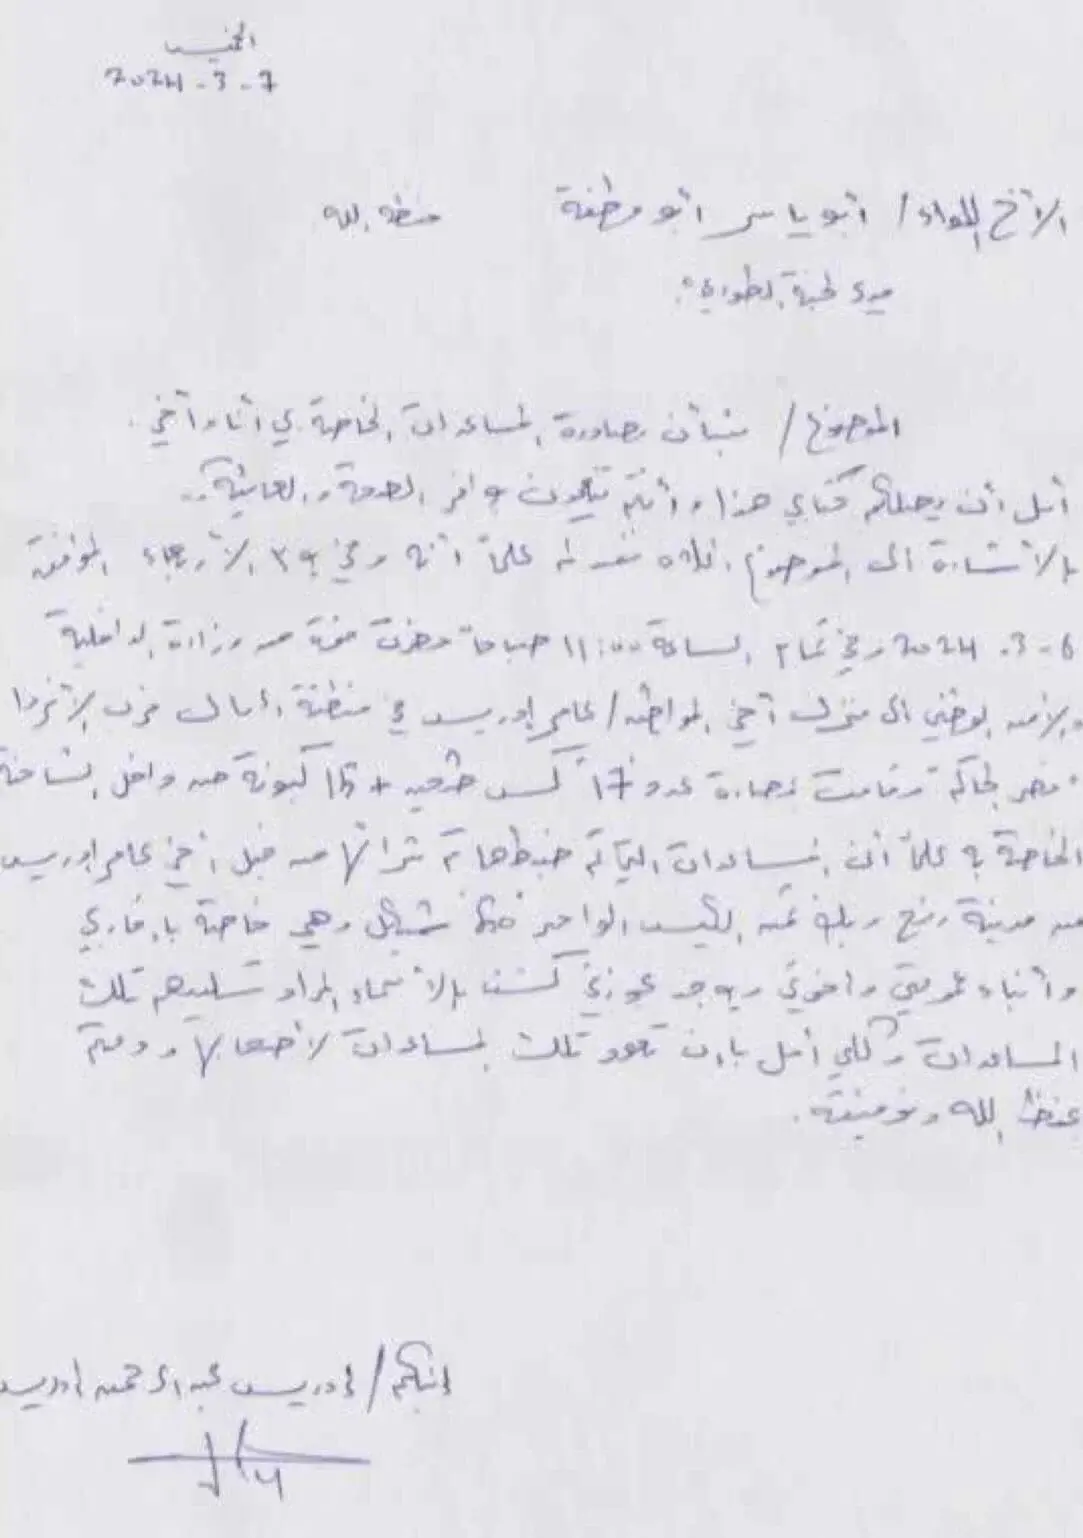 الخميس
2024-3-7
الأخ اللواء/ أبو ياسر أبو مطفة حفظه الله
مدير لجنة الطوارئ
الموضوع/ بشأن مصادرة المساعدات الخاصة بي أنا وأخي.
أمل أن يصلكم كتابي هذا وأنتم تنعمون بوافر الصحة والعافية..
بالأشارة الى الموضوع أعلاه نفيدكم علماً أنه وفي يوم الأربعاء الموافق
2024-3-6 وفي تمام الساعة 11:00 صباحاً حضرت قوة من وزارة الداخلية
والأمن الوطني الى منزل أخي المواطن/ عامر إدريس في منطقة
قصر الحاكم وقامت بمصادرة عدد "17" كيس طحين + 15 كبونة من داخل الشاحنة
الخاصة به علماً أن المساعدات التي تم ضبطها تم شرائها من قبل أخي عامر إدريس
من مدينة رفح وبلغ ثمن الكيس الواحد شيكل وهي خاصة بأقاربي
وأبناء عمومتي وأخوتي ويوجد بحوزتي كشف بالأسماء المراد تسليمهم تلك
المساعدات وكلي أمل بأن تعود تلك المساعدات لأصحابها ودمتم
بحفظ الله وتوفيقه.
إبنكم/ إدريس عبد الرحمن إدريس